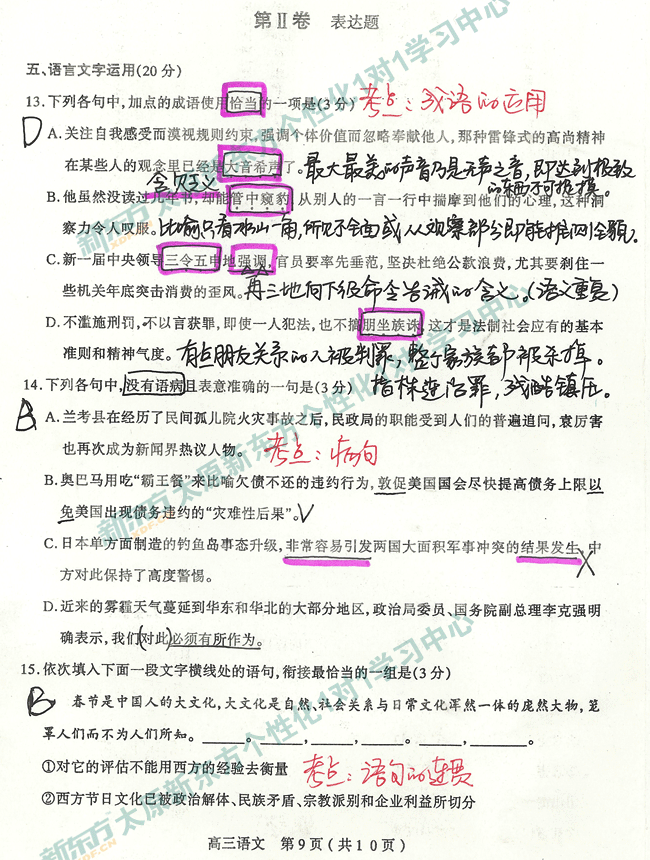 第Ⅱ卷 表达题
五、语言文字运用(20分)
13.下列各句中,加点的成语使用恰当的一项是(3分) 考点:成语的运用
D
A.关注自我感受而漠视规则约束,强调个体价值而忽略奉献他人,那种雷锋式的高尚精神
在某些人的观念里已经是大音希声了。最大最美的声音乃是无声之音,即达到极致
含贬义
B.他虽然没读过几年书,却能管中窥豹,从别人的一言一行中揣摩到他们的心理,这种洞
察力令人叹服。比喻只看到
C.新一届中央领导三令五申地强调,官员要率先垂范,坚决杜绝公款浪费,尤其要刹住一
些机关年底突击消费的歪风。再三地向下级命令告诫的含义。(语义重复)
D.不滥施刑罚,不以言获罪,即使一人犯法,也不搞朋坐族诛,这才是法制社会应有的基本
准则和精神气度。有点朋友关系的人被判罪,整个家族都被杀掉。
14.下列各句中,没有语病且表意准确的一句是(3分) 指株连治罪,残酷镇压。
B
A.兰考县在经历了民间孤儿院火灾事故之后,民政局的职能受到人们的普遍追问,袁厉害
也再次成为新闻界热议人物。 考点:病句
B.奥巴马用吃“霸王餐”来比喻欠债不还的违约行为,敦促美国国会尽快提高债务上限以
免美国出现债务违约的“灾难性后果”。
C.日本单方面制造的钓鱼岛事态升级,非常容易引发两国大面积军事冲突的结果发生,中
方对此保持了高度警惕。
D.近来的雾霾天气蔓延到华东和华北的大部分地区,政治局委员、国务院副总理李克强明
确表示,我们(对此)必须有所作为。
15.依次填入下面一段文字横线处的语句,衔接最恰当的一组是(3分)
B
春节是中国人的大文化,大文化是自然、社会关系与日常文化浑然一体的庞然大物,笼
罩人们而不为人们所知。______。______,______,______。______,______。
①对它的评估不能用西方的经验去衡量 考点:语句的连贯
②西方节日文化已被政治解体、民族矛盾、宗教派别和企业利益所切分
高三语文 第9页(共10页)
新东方太原新东方个性化1对1学习中心
XDF.CN